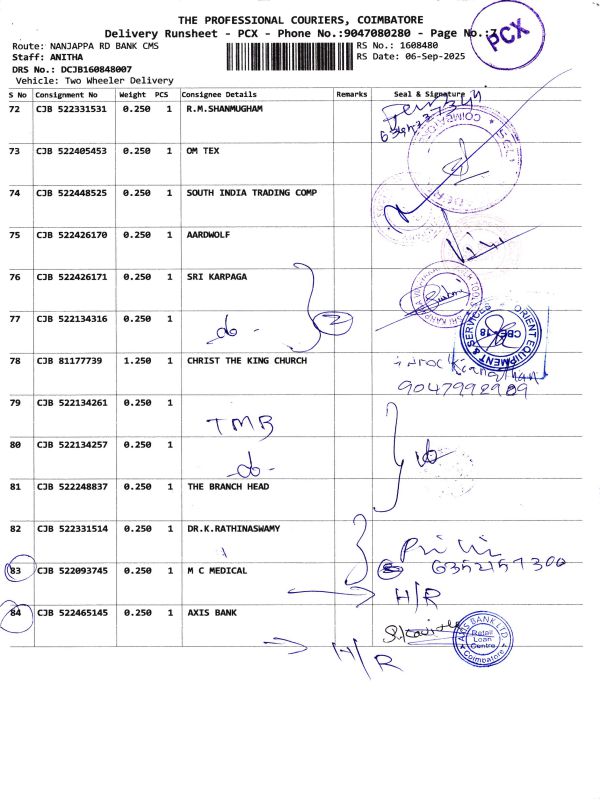 THE PROFESSIONAL COURIERS, COIMBATORE
Delivery Runsheet - PCX - Phone No.:9047080280 - Page No.:7
PCX
Route: NANJAPPA RD BANK CMS
RS No.: 1608480
Staff: ANITHA
RS Date: 06-Sep-2025
DRS No.: DCJB160848007
Vehicle: Two Wheeler Delivery
S No Consignment No Weight PCS Consignee Details Remarks Seal & Signature
72 CJB 522331531 0.250 1 R.M.SHANMUGHAM
73 CJB 522405453 0.250 1 OM TEX
COIMBATORE
74 CJB 522448525 0.250 1 SOUTH INDIA TRADING COMP
75 CJB 522426170 0.250 1 AARDWOLF
76 CJB 522426171 0.250 1 SRI KARPAGA
77 CJB 522134316 0.250 1
-do-
2
ORIENT EQUIPMENT & SERVICES
CBE-18
78 CJB 81177739 1.250 1 CHRIST THE KING CHURCH
9047992909
79 CJB 522134261 0.250 1
TMB
80 CJB 522134257 0.250 1
-do-
81 CJB 522248837 0.250 1 THE BRANCH HEAD
82 CJB 522331514 0.250 1 DR.K.RATHINASWAMY
83 CJB 522093745 0.250 1 M C MEDICAL
6352157300
H/R
84 CJB 522465145 0.250 1 AXIS BANK
AXIS BANK LTD.
Retail
Loan
Centre
Coimbatore
H/R